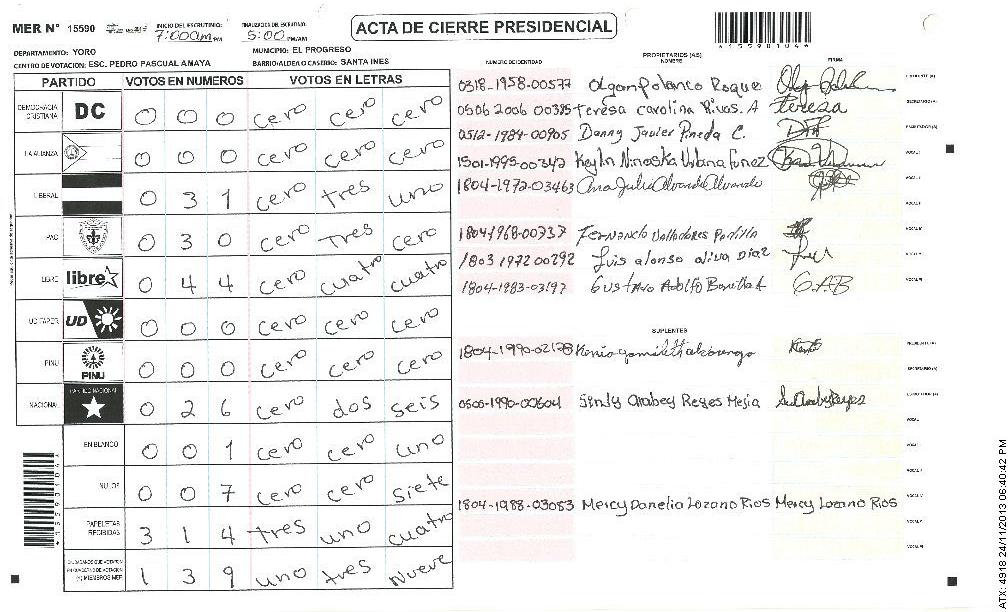 MER N° 15590 INICIO DEL ESCRUTINIO: 7:00am PM FINALIZACION DEL ESCRUTINIO: 5:00 PM/AM
ACTA DE CIERRE PRESIDENCIAL
DEPARTAMENTO: YORO MUNICIPIO: EL PROGRESO
CENTRO DE VOTACION: ESC. PEDRO PASCUAL AMAYA BARRIO/ALDEA O CASERIO: SANTA INES
PARTIDO VOTOS EN NUMEROS VOTOS EN LETRAS
DEMOCRACIA CRISTIANA DC 0 0 0 cero cero cero
LA ALIANZA 0 0 0 cero cero cero
LIBERAL 0 3 1 cero tres uno
PAC 0 3 0 cero tres cero
LIBRE libre 0 4 4 cero cuatro cuatro
UD FAPER UD 0 0 0 cero cero cero
PINU PINU 0 0 0 cero cero cero
NACIONAL PARTIDO NACIONAL 0 2 6 cero dos seis
EN BLANCO 0 0 1 cero cero uno
NULOS 0 0 7 cero cero siete
PAPELETAS RECIBIDAS 3 1 4 tres uno cuatro
CIUDADANOS QUE VOTARON EN CUADERNO DE VOTACION (+) MIEMBROS MER 1 3 9 uno tres nueve
NUMERO DE IDENTIDAD PROPIETARIOS (AS) NOMBRE FIRMA
0318-1958-00577 Olga Polanco Roque
0506 2006 00395 Teresa Carolina Rivas. A Teresa
0512-1984-00905 Danny Javier Pineda C.
1501-1995-00342 Keylin Ninoska Urbina Funez
1804-1972-03463 Ana Julia Alvarado Alvarado
1804-1968-00737 Fernando Valladores Padilla
1803 1972 00292 Luis alonso oliva Diaz
1804-1983-03197 Gustavo Adolfo Bonilla A G.AB
SUPLENTES
1804-1990-02128 Kenia
0505-1990-00604 Sindy Arabey Reyes Mejia
1804-1988-03053 Mercy Danelia Lozano Rios Mercy Lozano Rios
ATX: 4918 24/11/2013 06:40:42 PM